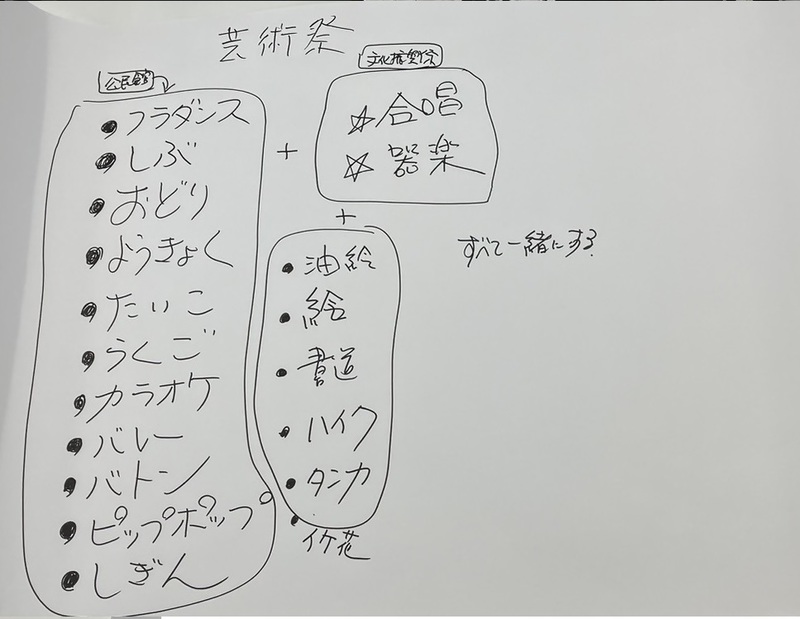 芸術祭
公民館
● フラダンス
● しぶ
● おどり
● ようきょく
● たいこ
● らくご
● カラオケ
● バレー
● バトン
● ピップポップ
● しぎん
+
☆ 合唱
☆ 器楽
+
• 油絵
• 絵
• 書道
• ハイク
• タンカ
• イケ花
すべて一緒にする